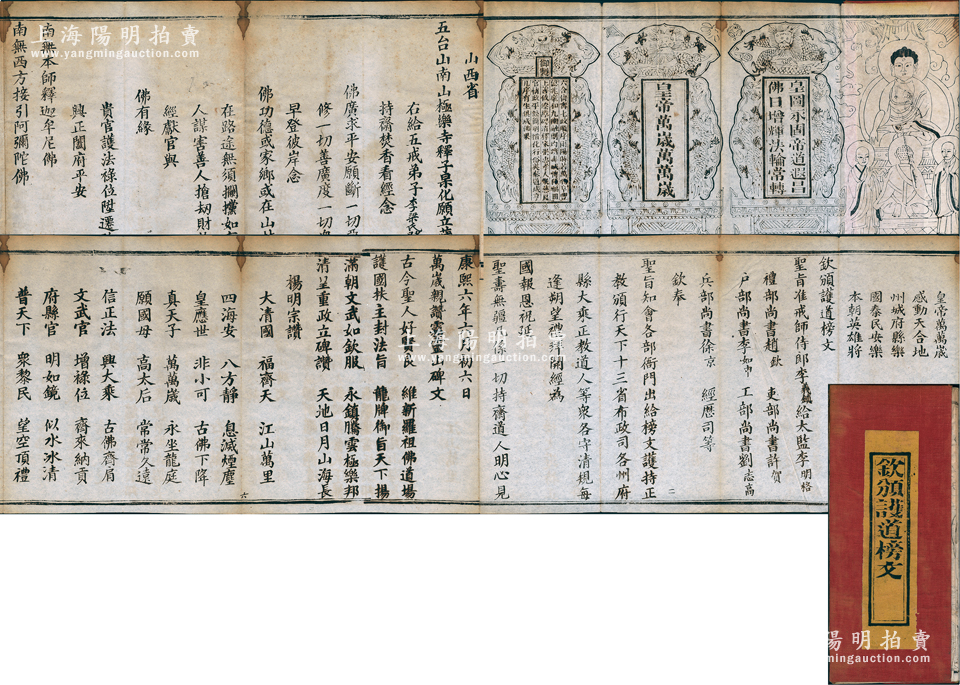 皇圖永固帝道遐昌
佛日增輝法輪常轉
皇帝萬歲萬萬歲
御製
山西省
五台山南山極樂寺釋子杲化願立
右給五戒弟子李
持齋焚香看經念
佛廣求平安願斷一切
修一切善廣度一切
早登彼岸念
佛功德或家鄉或在山
在路途無須攔攩如
人謀害善人搶刼財
經獻官興
佛有緣
貴官護法祿位陞遷
興正闔府平安
南無本師釋迦牟尼佛
南無西方接引阿彌陀佛
皇帝萬萬歲
感動天合地
州城府縣樂
國泰民安樂
本朝英雄將
欽頒護道榜文
聖旨准戒師侍郎李 給太監李明格
禮部尚書趙欽 吏部尚書許賀
户部尚書李如 工部尚書劉志高
兵部尚書徐京 經歷司等
欽奉
聖旨知會各部衙門出給榜文護持正
教頒行天下十三省布政司各州府
縣大乘正教道人等衆各守清規每
逢朔望禮拜開經為
國報恩祝延
聖壽無疆凡係一切持齋道人明心見
二
康熙六年六月初六日
萬歲親讚靈山碑文
古今聖人好賢良 維新羅祖佛道場
護國扶主封法旨 龍牌御旨天下揚
滿朝文武如欽服 永鎮騰雲極樂邦
清呈重政立碑讚 天地日月山海長
揚明宗讚
大清國 福齊天 江山萬里
四海安 八方靜 息滅煙塵
皇應世 非小可 古佛下降
真天子 萬萬歲 永坐龍庭
願國母 高太后 常常久遠
信正法 興大乘 古佛齊肩
文武官 增祿位 齊來納貢
府縣官 明如鏡 似水冰清
普天下 衆黎民 望空頂禮
六
欽頒護道榜文
上海陽明拍賣
www.yangmingauction.com
上海陽明拍賣
www.yangmingauction.com
上海陽明拍賣
www.yangmingauction.com
陽明拍賣
mingauction.com